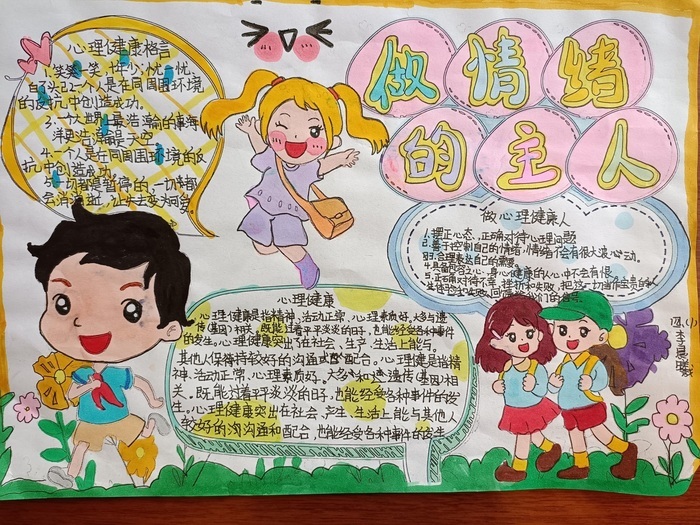 做情绪
的主人
心理健康格言
1.笑一笑,十年少;忧一忧,
白了头;2.一个人是在同周围环境
的反抗中创造成功。
3.一个大世界上最浩瀚的事海
洋是浩瀚是天空
4.一个人是在同周围环境的反
抗中创造成功。
5.一切都是暂停的,一切都
会消逝,让失去变为可
做心理健康人
1.摆正心态,正确对待心理问题
2.善于控制自己的情绪,情绪不会有很大波心动。
3.合理表达自己的需要。
身心健康的人心中不会有恨
5.正确对待不幸、挫折和失败,把这一切当作宝贵的人
心理健康
心理健康是指精神、活动正常、心理素质好。大多与遗
传(基因)相关,既能过着平平炎炎的日子,也能经受各种事件
的发生。心理健康突出在社会、生产、生活上能与
其他人保持较好的沟通或配合。心理健康是指精
神、活动正常、心理素质好。大多和遗传(基因)相
关。既能过着平平炎炎的日子,也能经受各种事件的发
生。心理健康突出在社会、产生、生活上能与其他人
较好的沟沟通和配合,也能经受各种事件的发生
四(1)
李